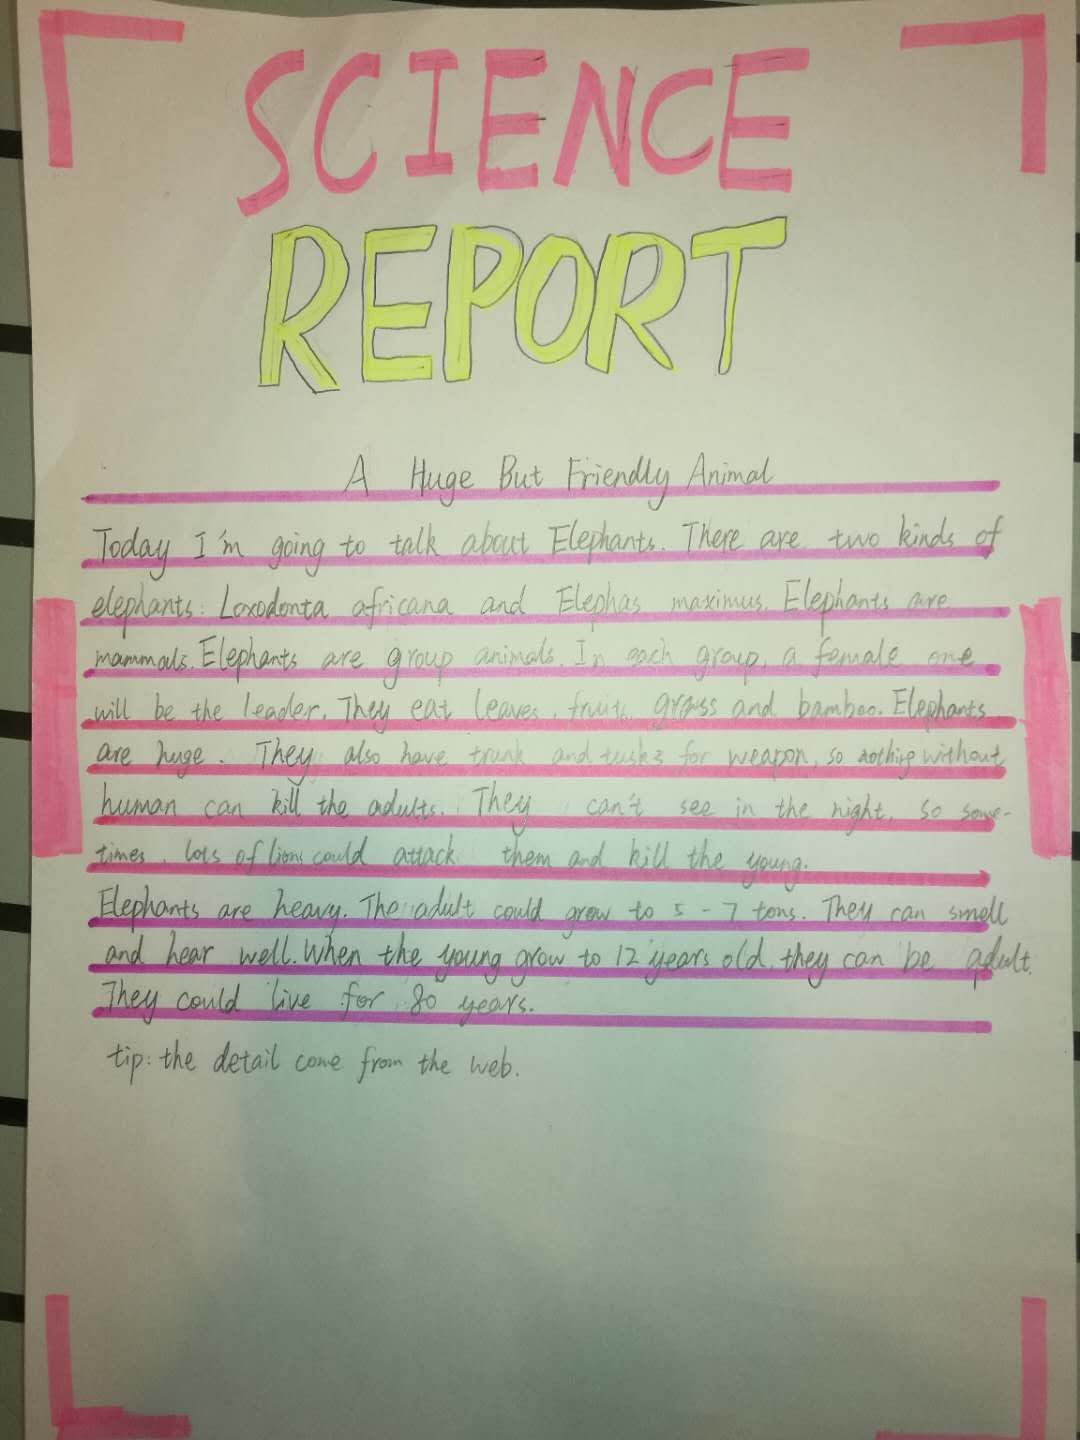 SCIENCE
REPORT
A Huge But Friendly Animal
Today I'm going to talk about Elephants. There are two kinds of
elephants: Loxodonta africana and Elephas maximus. Elephants are
mammals. Elephants are group animals. In each group, a female one
will be the leader. They eat leaves, fruits, grass and bamboo. Elephants
are huge. They also have trunk and tusks for weapon, so nothing without
human can kill the adults. They can't see in the night, so some-
times, lots of lions could attack them and kill the young.
Elephants are heavy. The adult could grow to 5-7 tons. They can smell
and hear well. When the young grow to 12 years old, they can be adult.
They could live for 80 years.
tip: the detail come from the web.